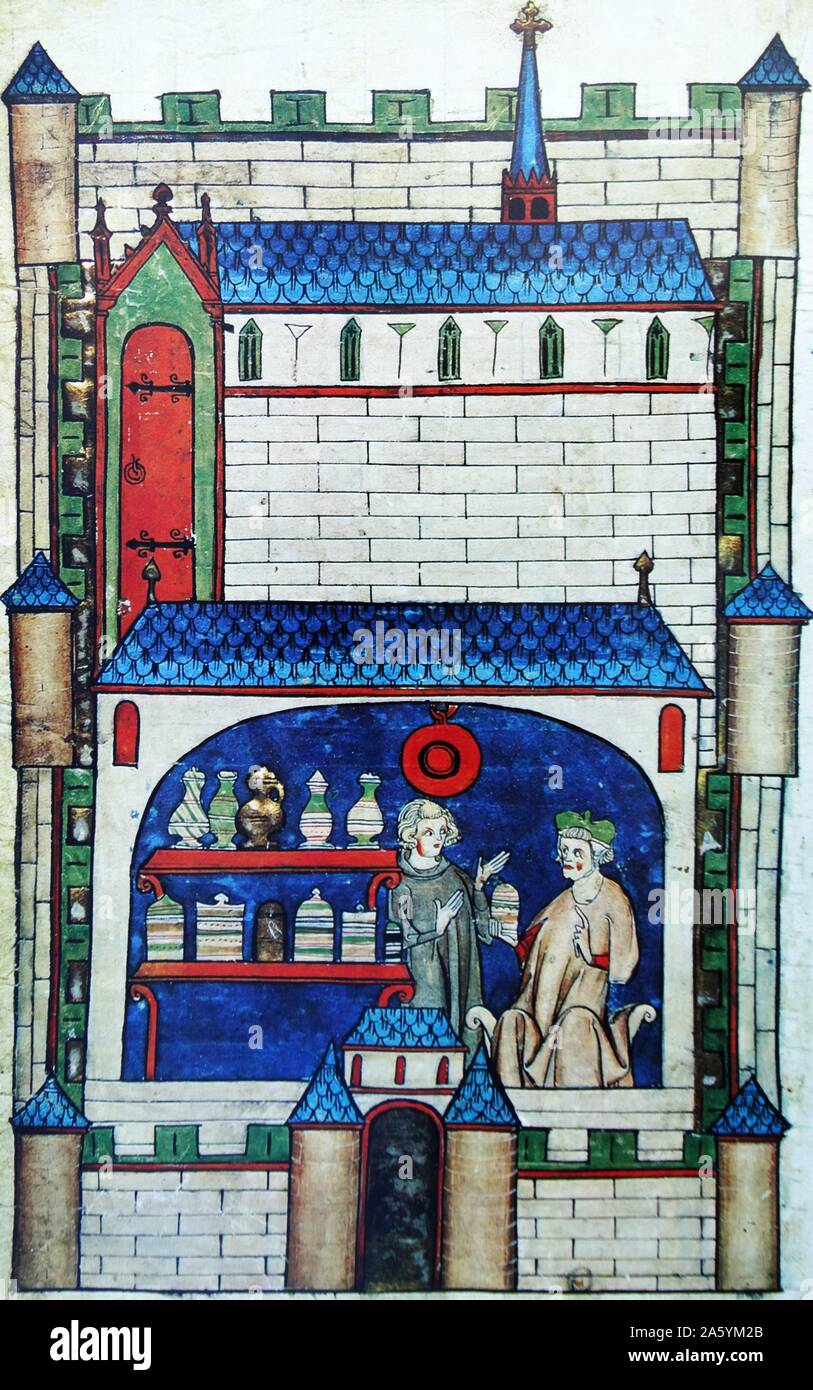 alamy
a
a
a
a
alamy
Image ID: 2A5YM2B
www.alamy.com